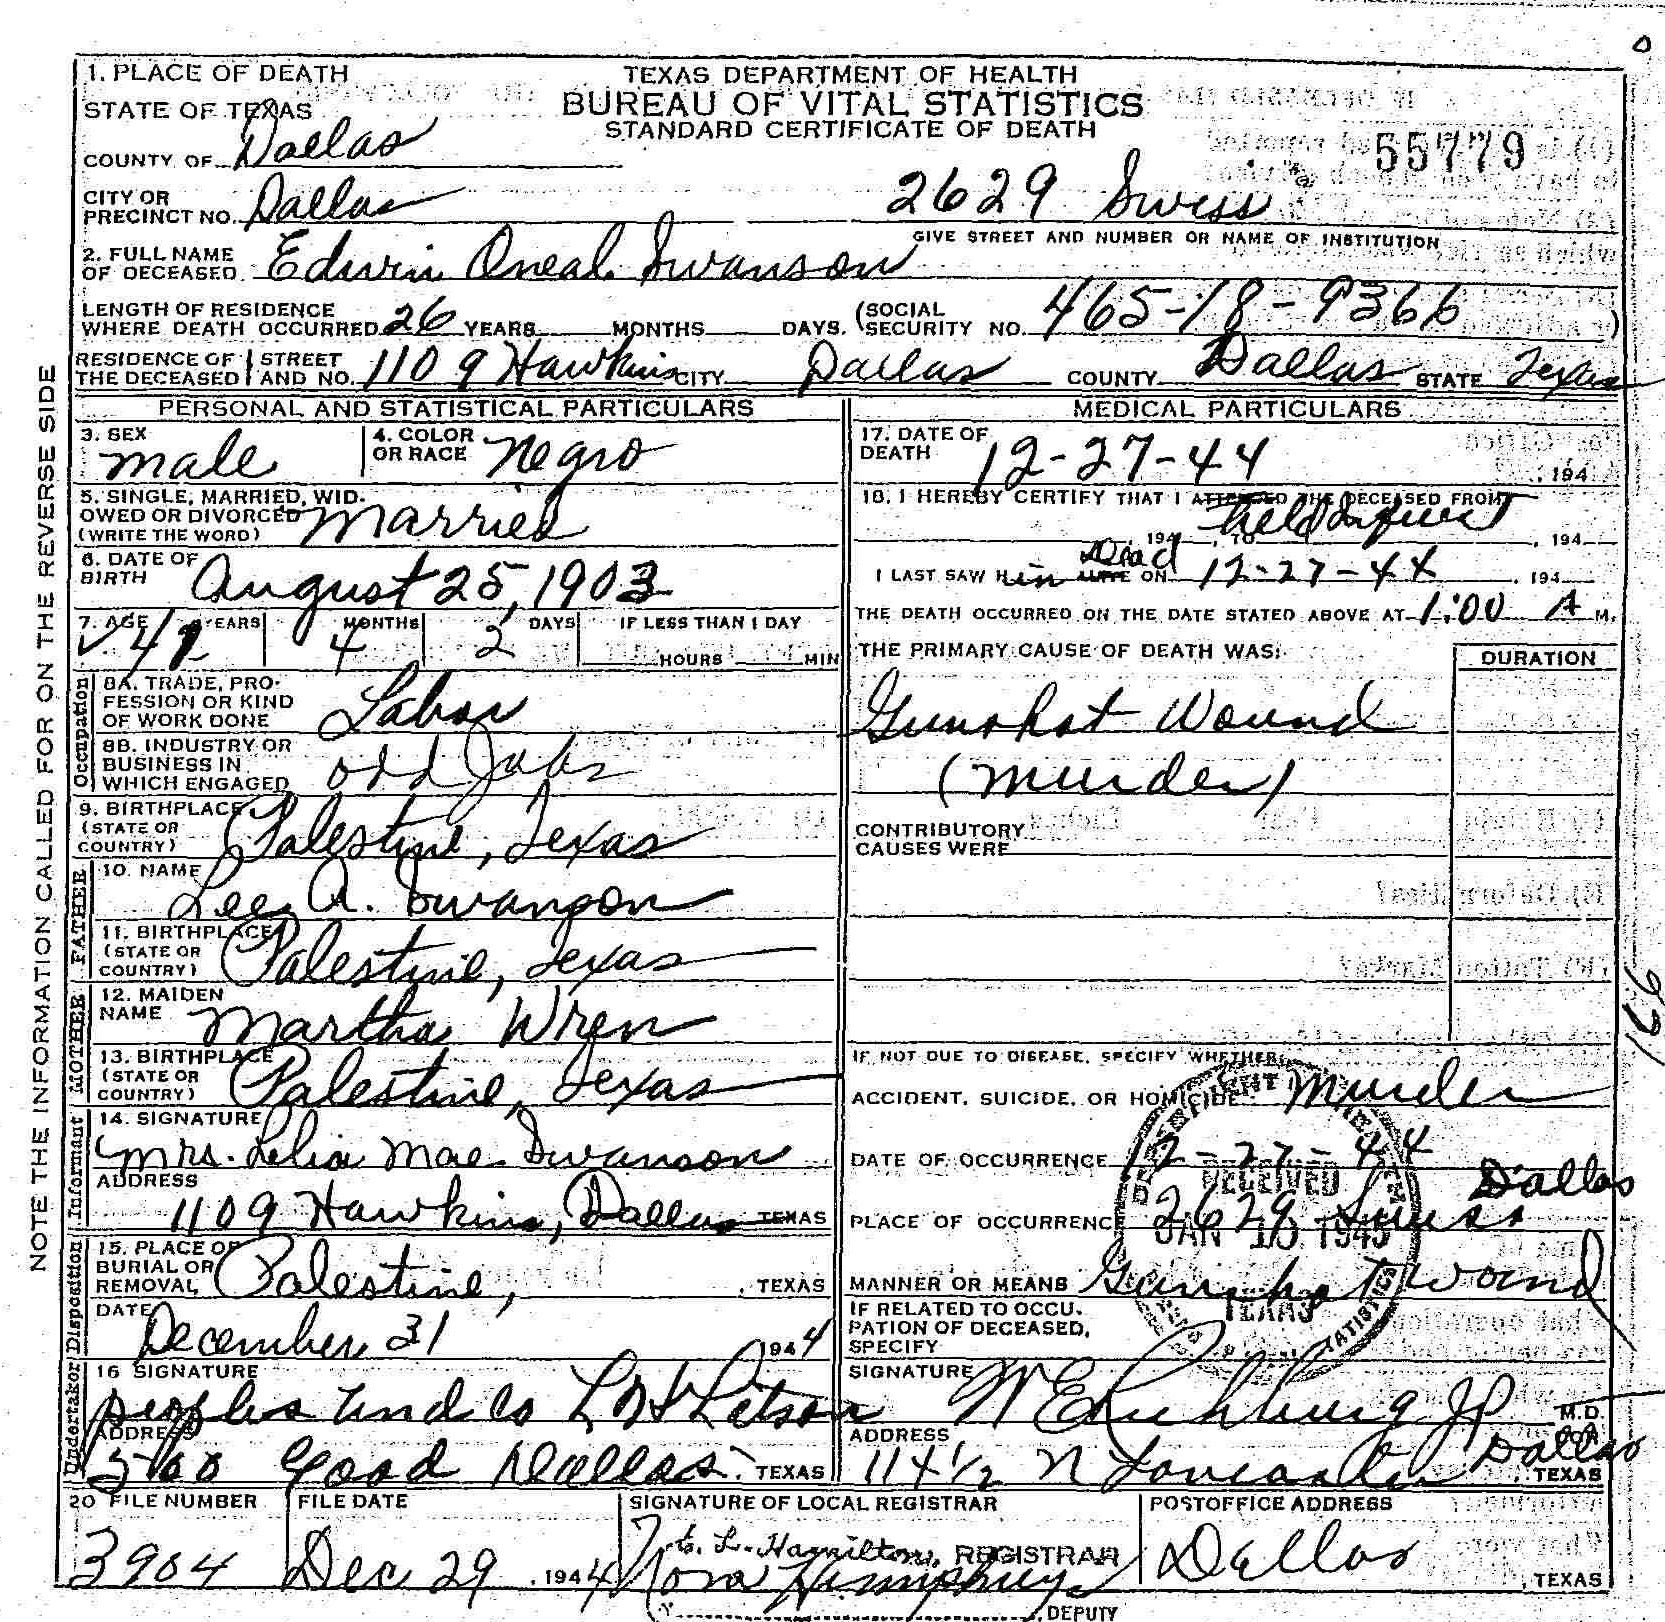 1. PLACE OF DEATH
STATE OF TEXAS
COUNTY OF Dallas
TEXAS DEPARTMENT OF HEALTH
BUREAU OF VITAL STATISTICS
STANDARD CERTIFICATE OF DEATH
55779
CITY OR PRECINCT NO. Dallas
2629 Swiss
GIVE STREET AND NUMBER OR NAME OF INSTITUTION
2. FULL NAME OF DECEASED Edwin Oneal Swanson
LENGTH OF RESIDENCE WHERE DEATH OCCURRED 26 YEARS MONTHS DAYS. (SOCIAL SECURITY NO. 465-18-9366 )
RESIDENCE OF THE DECEASED STREET AND NO. 1109 Hawkins CITY Dallas COUNTY Dallas STATE Texas
NOTE THE INFORMATION CALLED FOR ON THE REVERSE SIDE
PERSONAL AND STATISTICAL PARTICULARS
3. SEX male
4. COLOR OR RACE Negro
5. SINGLE, MARRIED, WIDOWED OR DIVORCED (WRITE THE WORD) Married
6. DATE OF BIRTH August 25, 1903
7. AGE YEARS 4 MONTHS 2 DAYS IF LESS THAN 1 DAY HOURS MIN
Occupation
8A. TRADE, PROFESSION OR KIND OF WORK DONE Labor
8B. INDUSTRY OR BUSINESS IN WHICH ENGAGED odd Jobs
9. BIRTHPLACE (STATE OR COUNTRY) Palestine, Texas
FATHER
10. NAME Lee A. Swanson
11. BIRTHPLACE (STATE OR COUNTRY) Palestine, Texas
MOTHER
12. MAIDEN NAME Martha Wren
13. BIRTHPLACE (STATE OR COUNTRY) Palestine, Texas
Informant
14. SIGNATURE Mrs. Lelia Mae Swanson
ADDRESS 1109 Hawkins, Dallas TEXAS
Disposition
15. PLACE OF BURIAL OR REMOVAL Palestine, TEXAS
DATE December 31 1944
Undertaker
16 SIGNATURE Peoples Und Co
ADDRESS Good Dallas. TEXAS
MEDICAL PARTICULARS
17. DATE OF DEATH 12-27-44 , 194
18. I HEREBY CERTIFY THAT I ATTENDED THE DECEASED FROM held Inquest
, 194 , TO , 194
I LAST SAW Him ALIVE Dead ON 12-27-44 , 194
THE DEATH OCCURRED ON THE DATE STATED ABOVE AT 1:00 A M.
THE PRIMARY CAUSE OF DEATH WAS: DURATION
Gunshot Wound
(Murder)
CONTRIBUTORY CAUSES WERE
166
IF NOT DUE TO DISEASE, SPECIFY WHETHER
ACCIDENT, SUICIDE, OR HOMICIDE Murder
DATE OF OCCURRENCE 12-27-44
PLACE OF OCCURRENCE 2629 Swiss Dallas
RECEIVED
JAN 10 1945
TEXAS
MANNER OR MEANS Gunshot Wound
IF RELATED TO OCCUPATION OF DECEASED, SPECIFY
SIGNATURE W E Richburg JP M.D.
ADDRESS 114½ N Lancaster Dallas, TEXAS
20 FILE NUMBER 3904
FILE DATE Dec 29, 1944
SIGNATURE OF LOCAL REGISTRAR
L. Hamilton, REGISTRAR
Nora Humphreys
, DEPUTY
POSTOFFICE ADDRESS
Dallas
, TEXAS